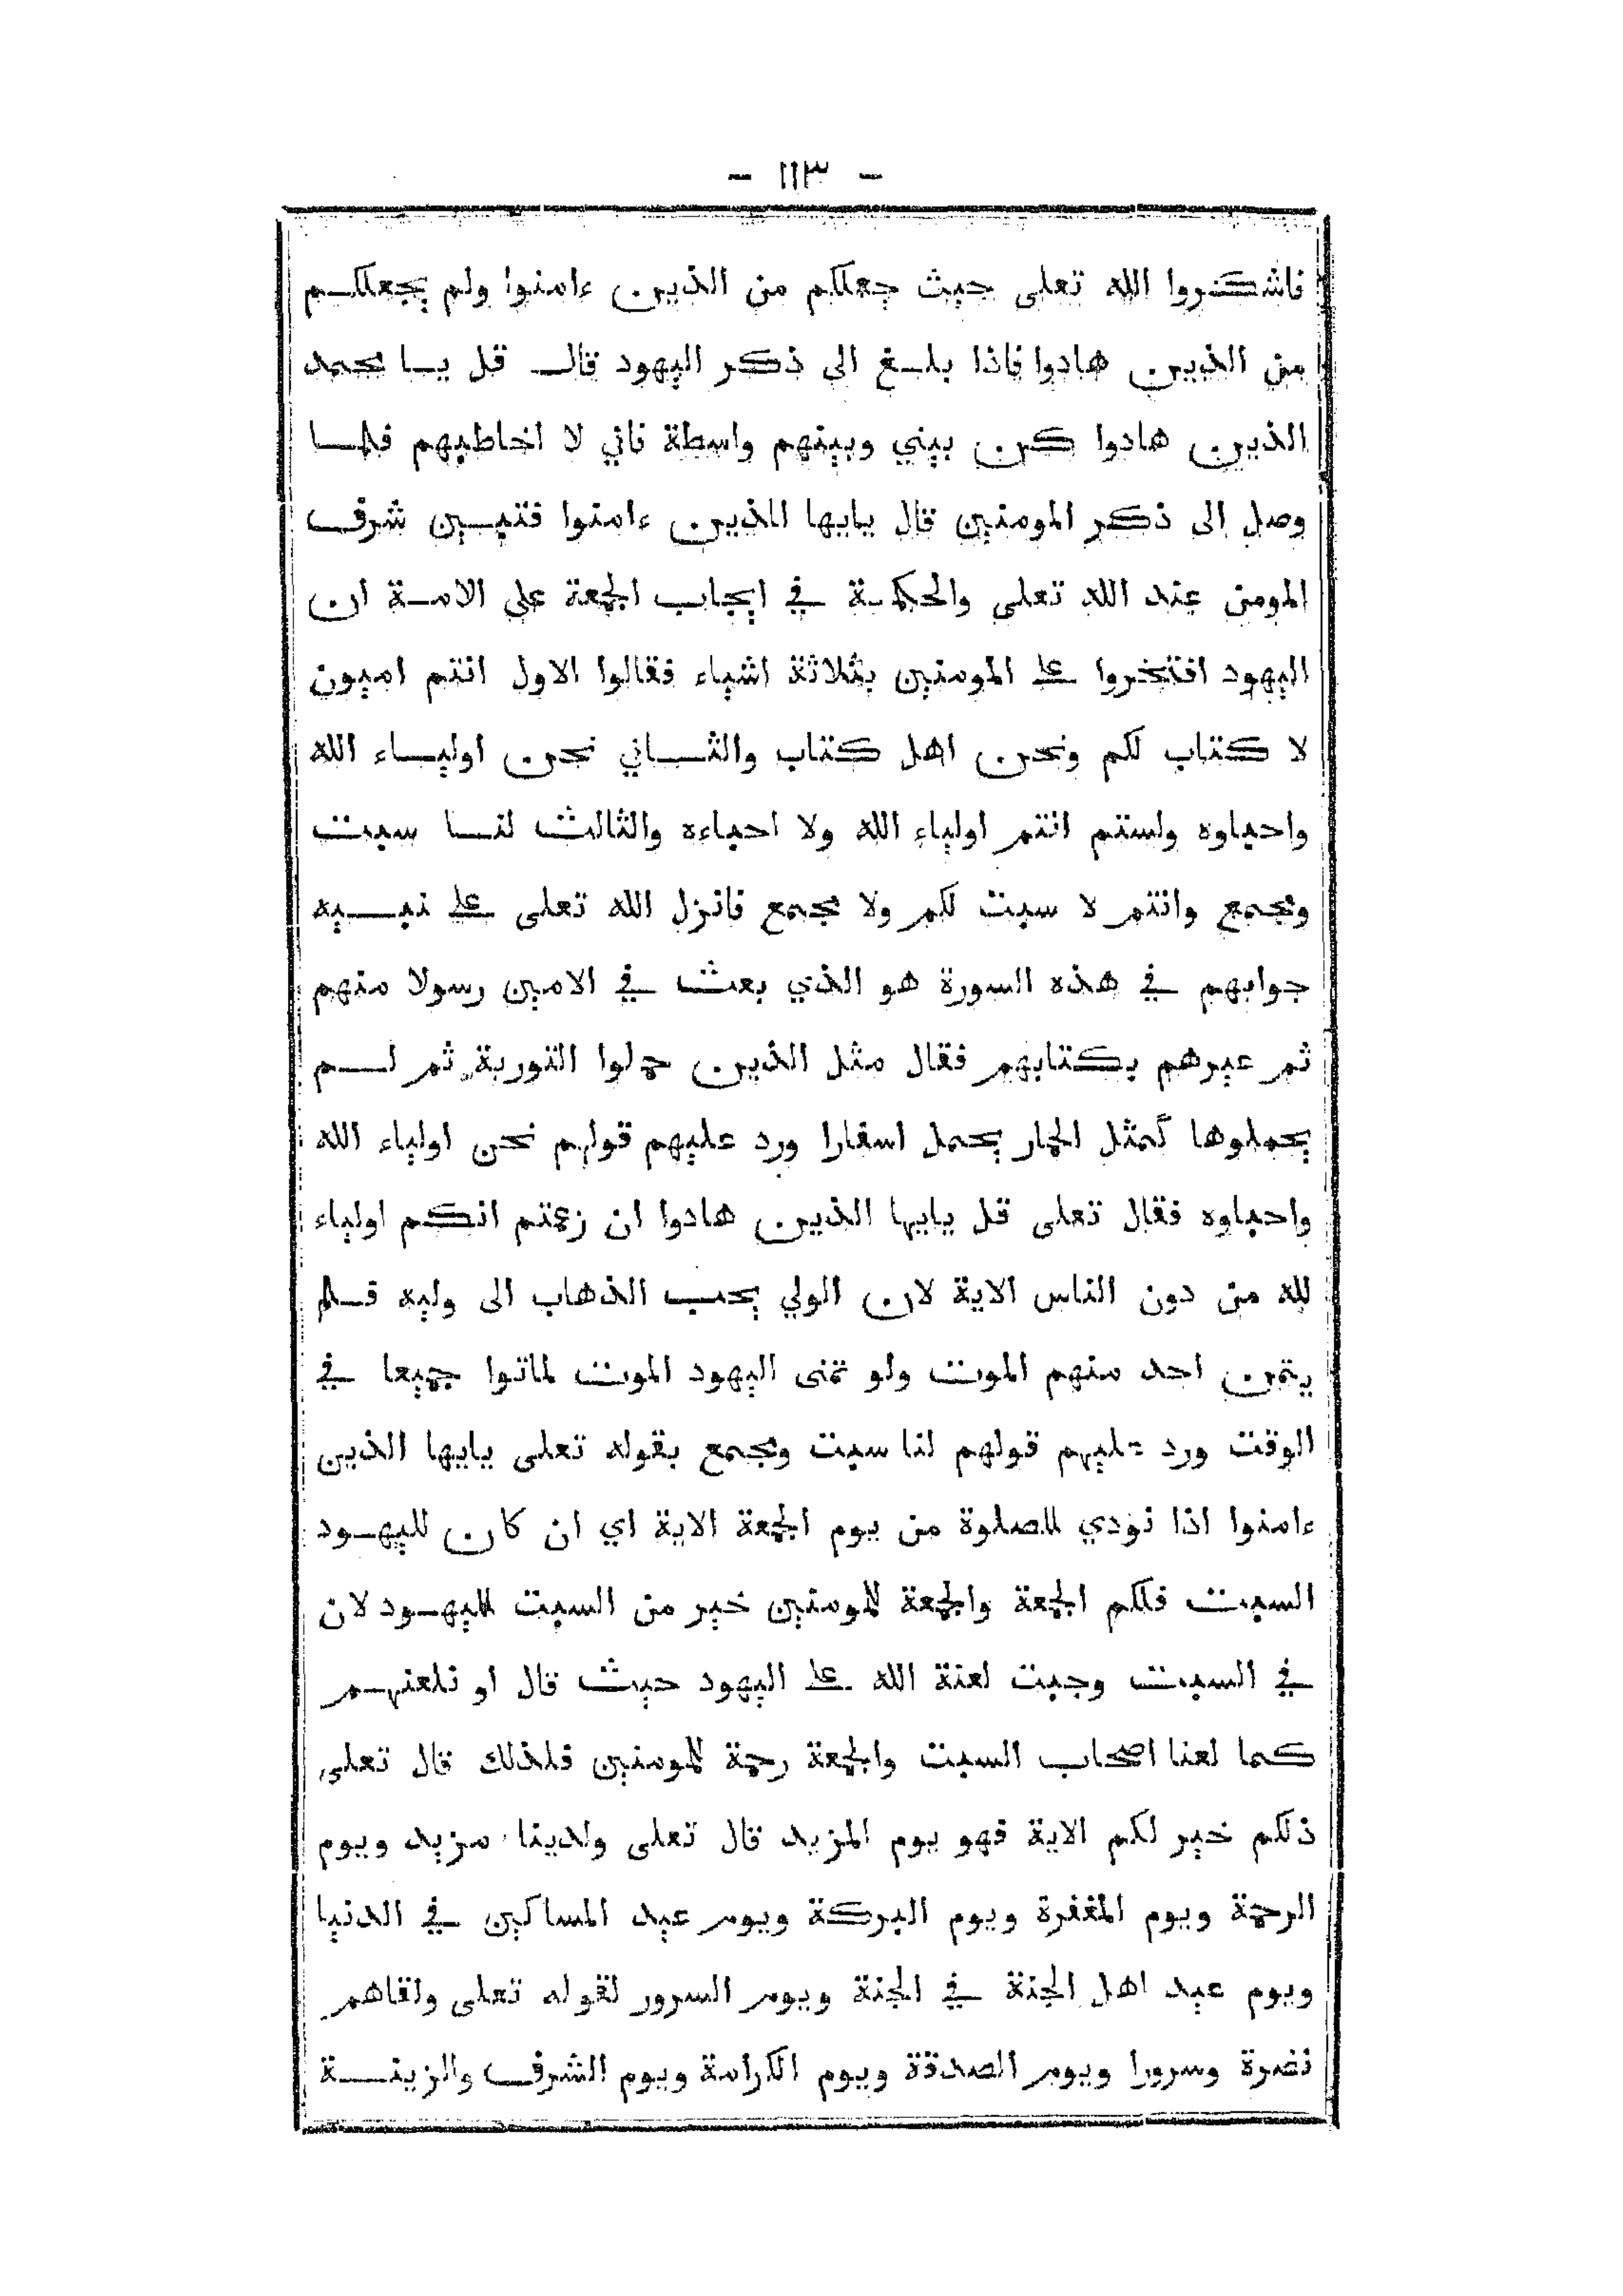 - ١١٣ -
فاشكروا الله تعلى حيث جعلكم من الذين ءامنوا ولم يجعلكم
من الذين هادوا فاذا بلغ الى ذكر اليهود قال قل يا محمد
الذين هادوا كن بيني وبينهم واسطة فاني لا اخاطبهم فلما
وصل الى ذكر المومنين قال يايها الذين ءامنوا فتبين شرف
المومن عند الله تعلى والحكمة في ايجاب الجمعة على الامة ان
اليهود افتخروا على المومنين بثلاثة اشياء فقالوا الاول انتم اميون
لا كتاب لكم ونحن اهل كتاب والثاني نحن اولياء الله
واحباوه ولستم انتم اولياء الله ولا احباءه والثالث لنا سبت
ونجمع وانتم لا سبت لكم ولا مجمع فانزل الله تعلى على نبيه
جوابهم في هذه السورة هو الذي بعث في الامين رسولا منهم
ثم عيرهم بكتابهم فقال مثل الذين حملوا التورية ثم لم
يحملوها كمثل الحمار يحمل اسفارا ورد عليهم قولهم نحن اولياء الله
واحباوه فقال تعلى قل يايها الذين هادوا ان زعمتم انكم اولياء
لله من دون الناس الاية لان الولي يحب الذهاب الى وليه فلم
يتمن احد منهم الموت ولو تمنى اليهود الموت لماتوا جميعا في
الوقت ورد عليهم قولهم لنا سبت ونجمع بقوله تعلى يايها الذين
ءامنوا اذا نودي للصلوة من يوم الجمعة الاية اي ان كان لليهود
السبت فلكم الجمعة والجمعة للمومنين خير من السبت لليهود لان
في السبت وجبت لعنة الله على اليهود حيث قال او نلعنهم
كما لعنا اصحاب السبت والجمعة رحمة للمومنين فلذلك قال تعلى
ذلكم خير لكم الاية فهو يوم المزيد قال تعلى ولدينا مزيد ويوم
الرحمة ويوم المغفرة ويوم البركة ويوم عيد المساكين في الدنيا
ويوم عيد اهل الجنة في الجنة ويوم السرور لقوله تعلى ولقاهم
نضرة وسرورا ويوم الصدقة ويوم الكرامة ويوم الشرف والزينة